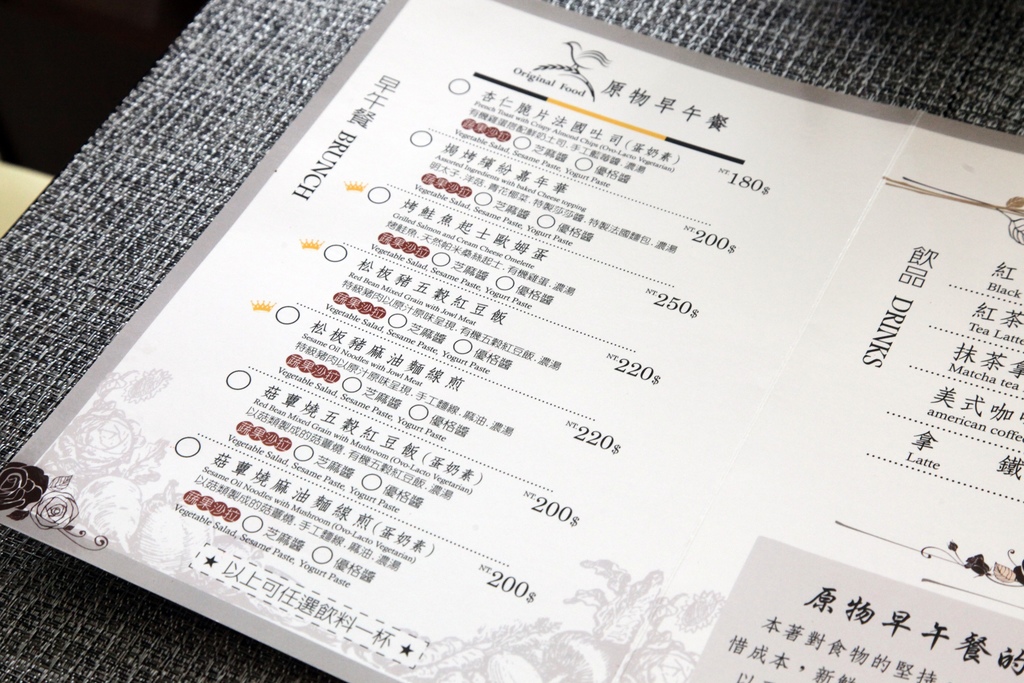 Original Food
原物早午餐
早午餐 BRUNCH
杏仁脆片法國吐司(蛋奶素)
French Toast with Crispy Almond Chips (Ovo-Lacto Vegetarian)
有機雞蛋搭配鮮奶土司, 手工藍莓醬, 濃湯
蔬果沙拉 芝麻醬 優格醬
Vegetable Salad, Sesame Paste, Yogurt Paste
NT 180$
焗烤繽紛嘉年華
Assorted Ingredients with baked Cheese topping
明太子, 洋菇, 青花椰菜, 特製莎莎醬, 特製法國麵包, 濃湯
蔬果沙拉 芝麻醬 優格醬
Vegetable Salad, Sesame Paste, Yogurt Paste
NT 200$
烤鮭魚起士歐姆蛋
Grilled Salmon and Cream Cheese Omelette
烤鮭魚, 天然帕米桑絲起士, 有機雞蛋, 濃湯
蔬果沙拉 芝麻醬 優格醬
Vegetable Salad, Sesame Paste, Yogurt Paste
NT 250$
松板豬五穀紅豆飯
Red Bean Mixed Grain with Jowl Meat
特級豬肉以原汁原味呈現, 有機五穀紅豆飯, 濃湯
蔬果沙拉 芝麻醬 優格醬
Vegetable Salad, Sesame Paste, Yogurt Paste
NT 220$
松板豬麻油麵線煎
Sesame Oil Noodles with Jowl Meat
特級豬肉以原汁原味呈現, 手工麵線, 麻油, 濃湯
蔬果沙拉 芝麻醬 優格醬
Vegetable Salad, Sesame Paste, Yogurt Paste
NT 220$
菇蕈燒五穀紅豆飯(蛋奶素)
Red Bean Mixed Grain with Mushroom (Ovo-Lacto Vegetarian)
以菇類製成的菇蕈燒, 有機五穀紅豆飯, 濃湯
蔬果沙拉 芝麻醬 優格醬
Vegetable Salad, Sesame Paste, Yogurt Paste
NT 200$
菇蕈燒麻油麵線煎(蛋奶素)
Sesame Oil Noodles with Mushroom (Ovo-Lacto Vegetarian)
以菇類製成的菇蕈燒, 手工麵線, 麻油, 濃湯
蔬果沙拉 芝麻醬 優格醬
Vegetable Salad, Sesame Paste, Yogurt Paste
NT 200$
★ 以上可任選飲料一杯 ★
飲品 DRINKS
紅
Black
紅茶
Tea Latte
抹茶拿
Matcha tea
美式咖
american coffee
拿鐵
Latte
原物早午餐的
本著對食物的堅持
惜成本，新鮮